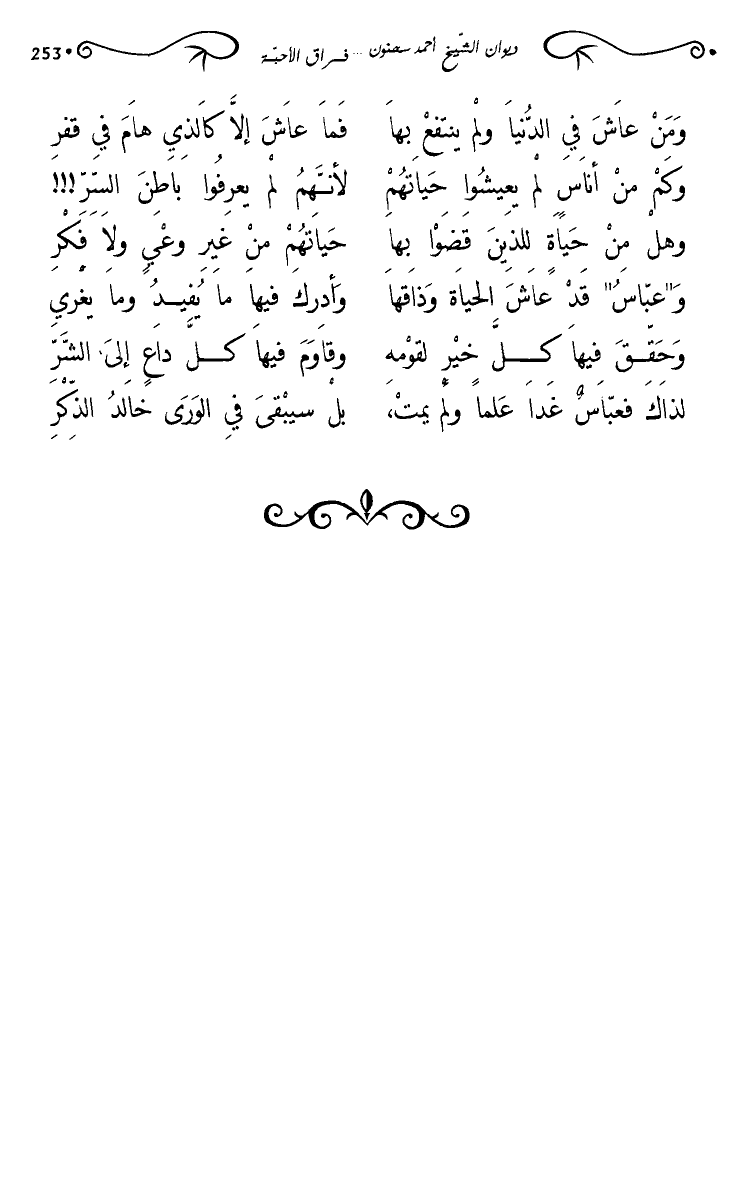 ديوان الشّيخ أحمد سحنون ... فراق الأحبّة 253
وَمَنْ عاشَ فِي الدُّنياَ ولمْ ينتفعْ بِهاَ فَماَ عاشَ إلاَّ كاَلذيِ هامَ فِي قفرِ
وكَمْ منْ أناَسٍ لمْ يعِيشُوا حَياتَهُمْ لأنـَّهمُ لمْ يعرِفُوا باَطنَ السّرّ!!!
وهلْ منْ حَياَةٍ للذينَ قَضوْا بِهاَ حَياَتَهُمْ منْ غَيِر وعْيٍ ولاَ فِكْرِ
وَ"عبّاسُ" قدْ عاَشَ الحياة وَذاقهاَ وَأدركَ فيهاَ ماَ يُفِيـدُ وماَ يغْريِ
وَحَقّـقَ فيهاَ كـــلَّ خيْرٍ لقوْمه وقاَومَ فيهاَ كـــلَّ داعٍ إلىَ الشَّرّ
لذاَكَ فعبّاسٌ غَداَ عَلماً ولمْ يمتْ، بلْ سيبْقىَ فِي الوَرَى خاَلدُ الذّكْرِ